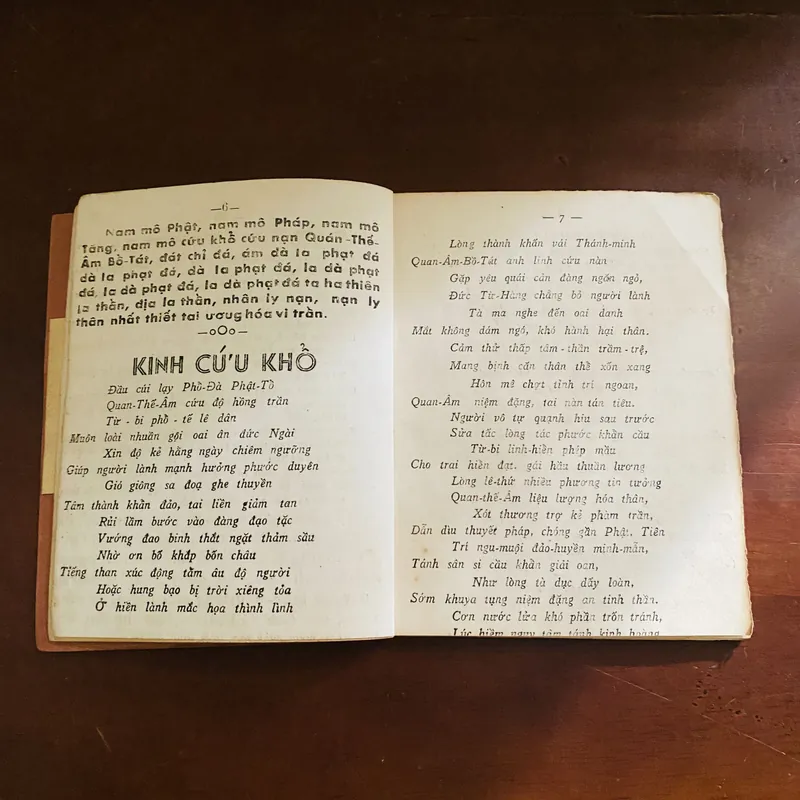 —6—
Nam mô Phật, nam mô Pháp, nam mô
Tăng, nam mô cứu khổ cứu nạn Quán-Thế-
Âm Bồ-Tát, đát chỉ đá, ám dà la phạt đá
dà la phạt đá, dà la phạt đá, la dà phạt
đá, la dà phạt đá, la dà phạt đá ta ha thiên
la thần, địa la thần, nhân ly nạn, nạn ly
thân nhất thiết tai ương hóa vi trần.
—oOo—
KINH CỨU KHỔ
Đầu cúi lạy Phồ-Đà Phật-Tồ
Quan-Thế-Âm cứu độ hồng trần
Từ-bi phồ-tế lê dân
Muôn loài nhuần gội oai ân đức Ngài
Xin độ kẻ hằng ngày chiêm ngưỡng
Giúp người lành mạnh hưởng phước duyên
Gió giông sa đoạ ghe thuyền
Tâm thành khẩn đảo, tai liền giảm tan
Rủi lầm bước vào đàng đạo tặc
Vướng đao binh thắt ngặt thảm sầu
Nhờ ơn bố khắp bốn châu
Tiếng than xúc động tầm âu độ người
Hoặc hung bạo bị trời xiêng tỏa
Ở hiền lành mắc họa thình lình
— 7 —
Lòng thành khẩn vái Thánh-minh
Quan-Âm-Bồ-Tát anh linh cứu nàn
Gặp yêu quái cản đàng ngồn ngộ,
Đức Từ-Hàng chẳng bỏ người lành
Tà ma nghe đến oai danh
Mắt không dám ngó, khó hành hại thân.
Cảm thử thấp tâm-thần trầm-trệ,
Mang bịnh căn thân thể xốn xang
Hôn mê chợt tỉnh trí ngoan,
Quan-Âm niệm đặng, tai nàn tán tiêu.
Người vô tự quạnh hiu sau trước
Sửa tấc lòng tác phước khẩn cầu
Từ-bi linh-hiển phép mầu
Cho trai hiền đạt, gái hầu thuần lương
Lòng lê-thứ nhiều phương tin tưởng
Quan-thế-Âm liệu lượng hóa thân,
Xót thương trợ kẻ phàm trần,
Dẫn dìu thuyết pháp, chóng gần Phật, Tiên
Trí ngu-muội đảo-huyền minh-mẫn,
Tánh sân si cầu khẩn giải oan,
Như lòng tà dục dấy loàn,
Sớm khuya tụng niệm đặng an tinh thần.
Cơn nước lửa khó phần trốn tránh,
Lúc hiểm nguy tâm tánh kinh hoàng